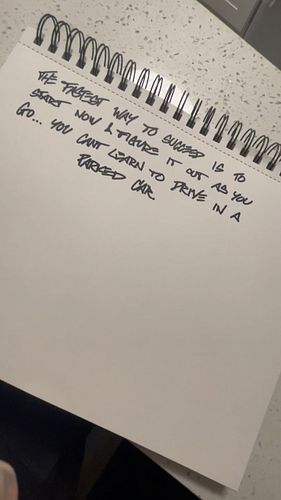 THE FASTEST WAY TO SUCCEED IS TO
START NOW & FIGURE IT OUT AS YOU
GO... YOU CANT LEARN TO DRIVE IN A
PARKED CAR.